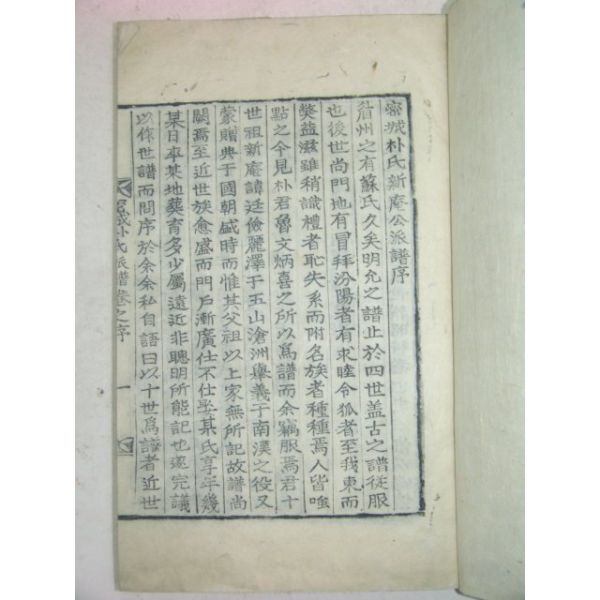 密城朴氏新庵公派譜序
眉州之有蘇氏久矣明允之譜止於四世盖古之譜從服
也後世尚門地有冒拜汾陽者有求睦令狐者至我東而
獘益滋雖稍識禮者恥失系而附名族者種種焉人皆唾
點之今見朴君魯文炳喜之所以爲譜而余竊服焉君十
世祖新庵諱廷儉麗澤于玉山滄洲舉義于南漢之役又
蒙贈典于國朝盛時而惟其父祖以上家無所記故譜尚
闕焉至近世族愈盛而門戶漸廣仕不仕娶某氏享年幾
某日卒某地葬育多少屬遠近非聰明所能記也遂完議
以作世譜而問序於余余私自語曰以十世爲譜者近世
密城朴氏派譜卷之序 一